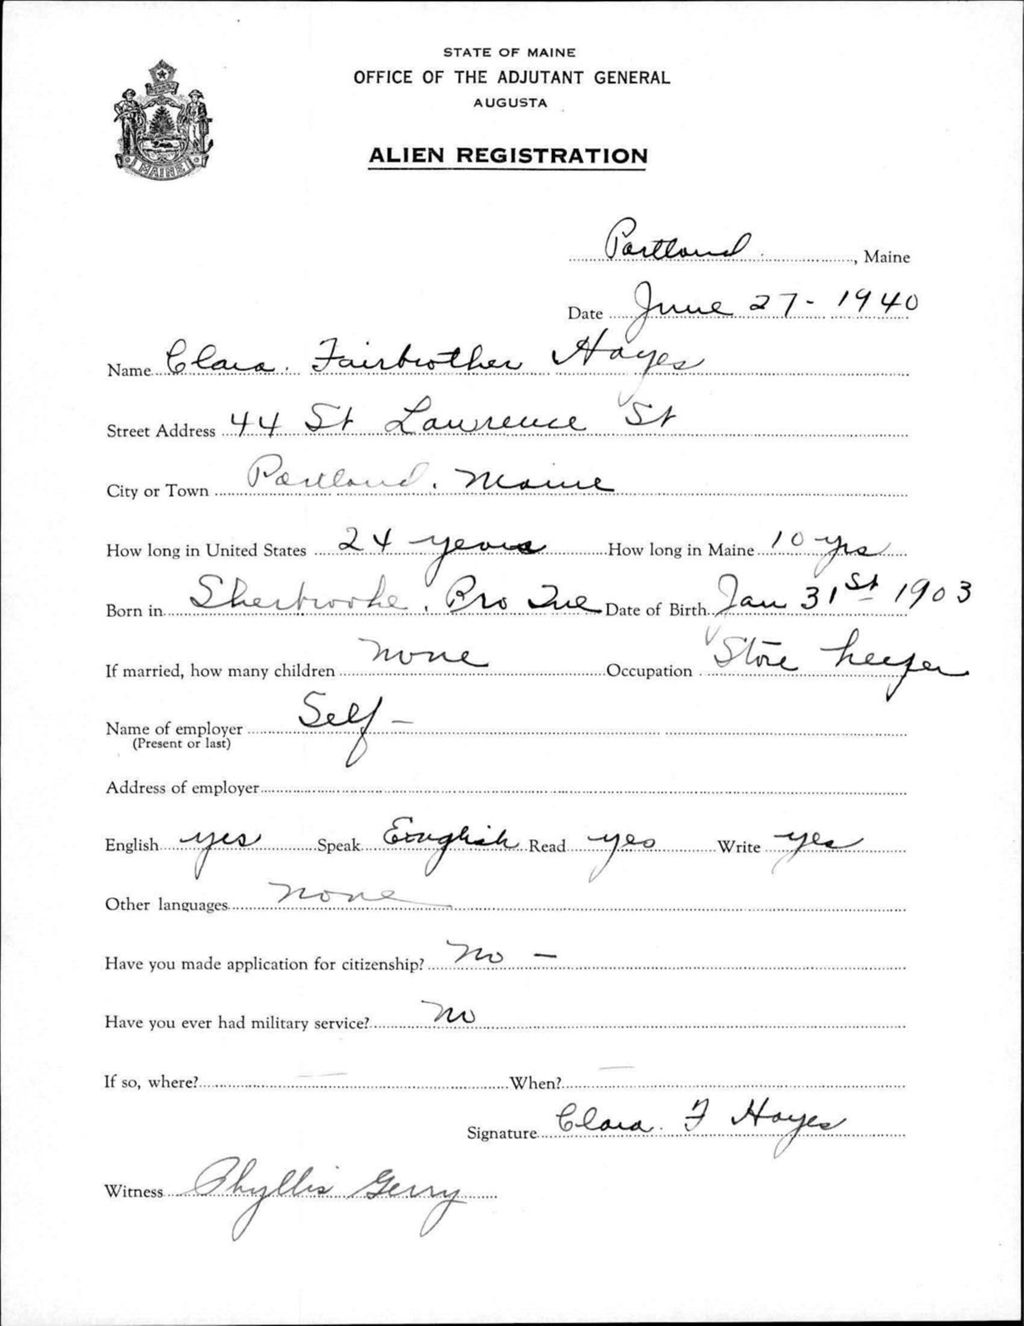 STATE OF MAINE
OFFICE OF THE ADJUTANT GENERAL
AUGUSTA
ALIEN REGISTRATION
MAINE
Portland, Maine
Date June 27 - 1940
Name Clara. Fairbrother Hayes
Street Address 44 St Lawrence St
City or Town Portland. Maine
How long in United States 24 years How long in Maine 10 yrs
Born in Sherbrooke. Pro Que Date of Birth Jan 31st 1903
If married, how many children none Occupation Store keeper
Name of employer Self -
(Present or last)
Address of employer
English yes Speak English Read yes Write yes
Other languages none
Have you made application for citizenship? No -
Have you ever had military service? No
If so, where? — When? —
Signature Clara. F Hayes
Witness Phyllis Gerry